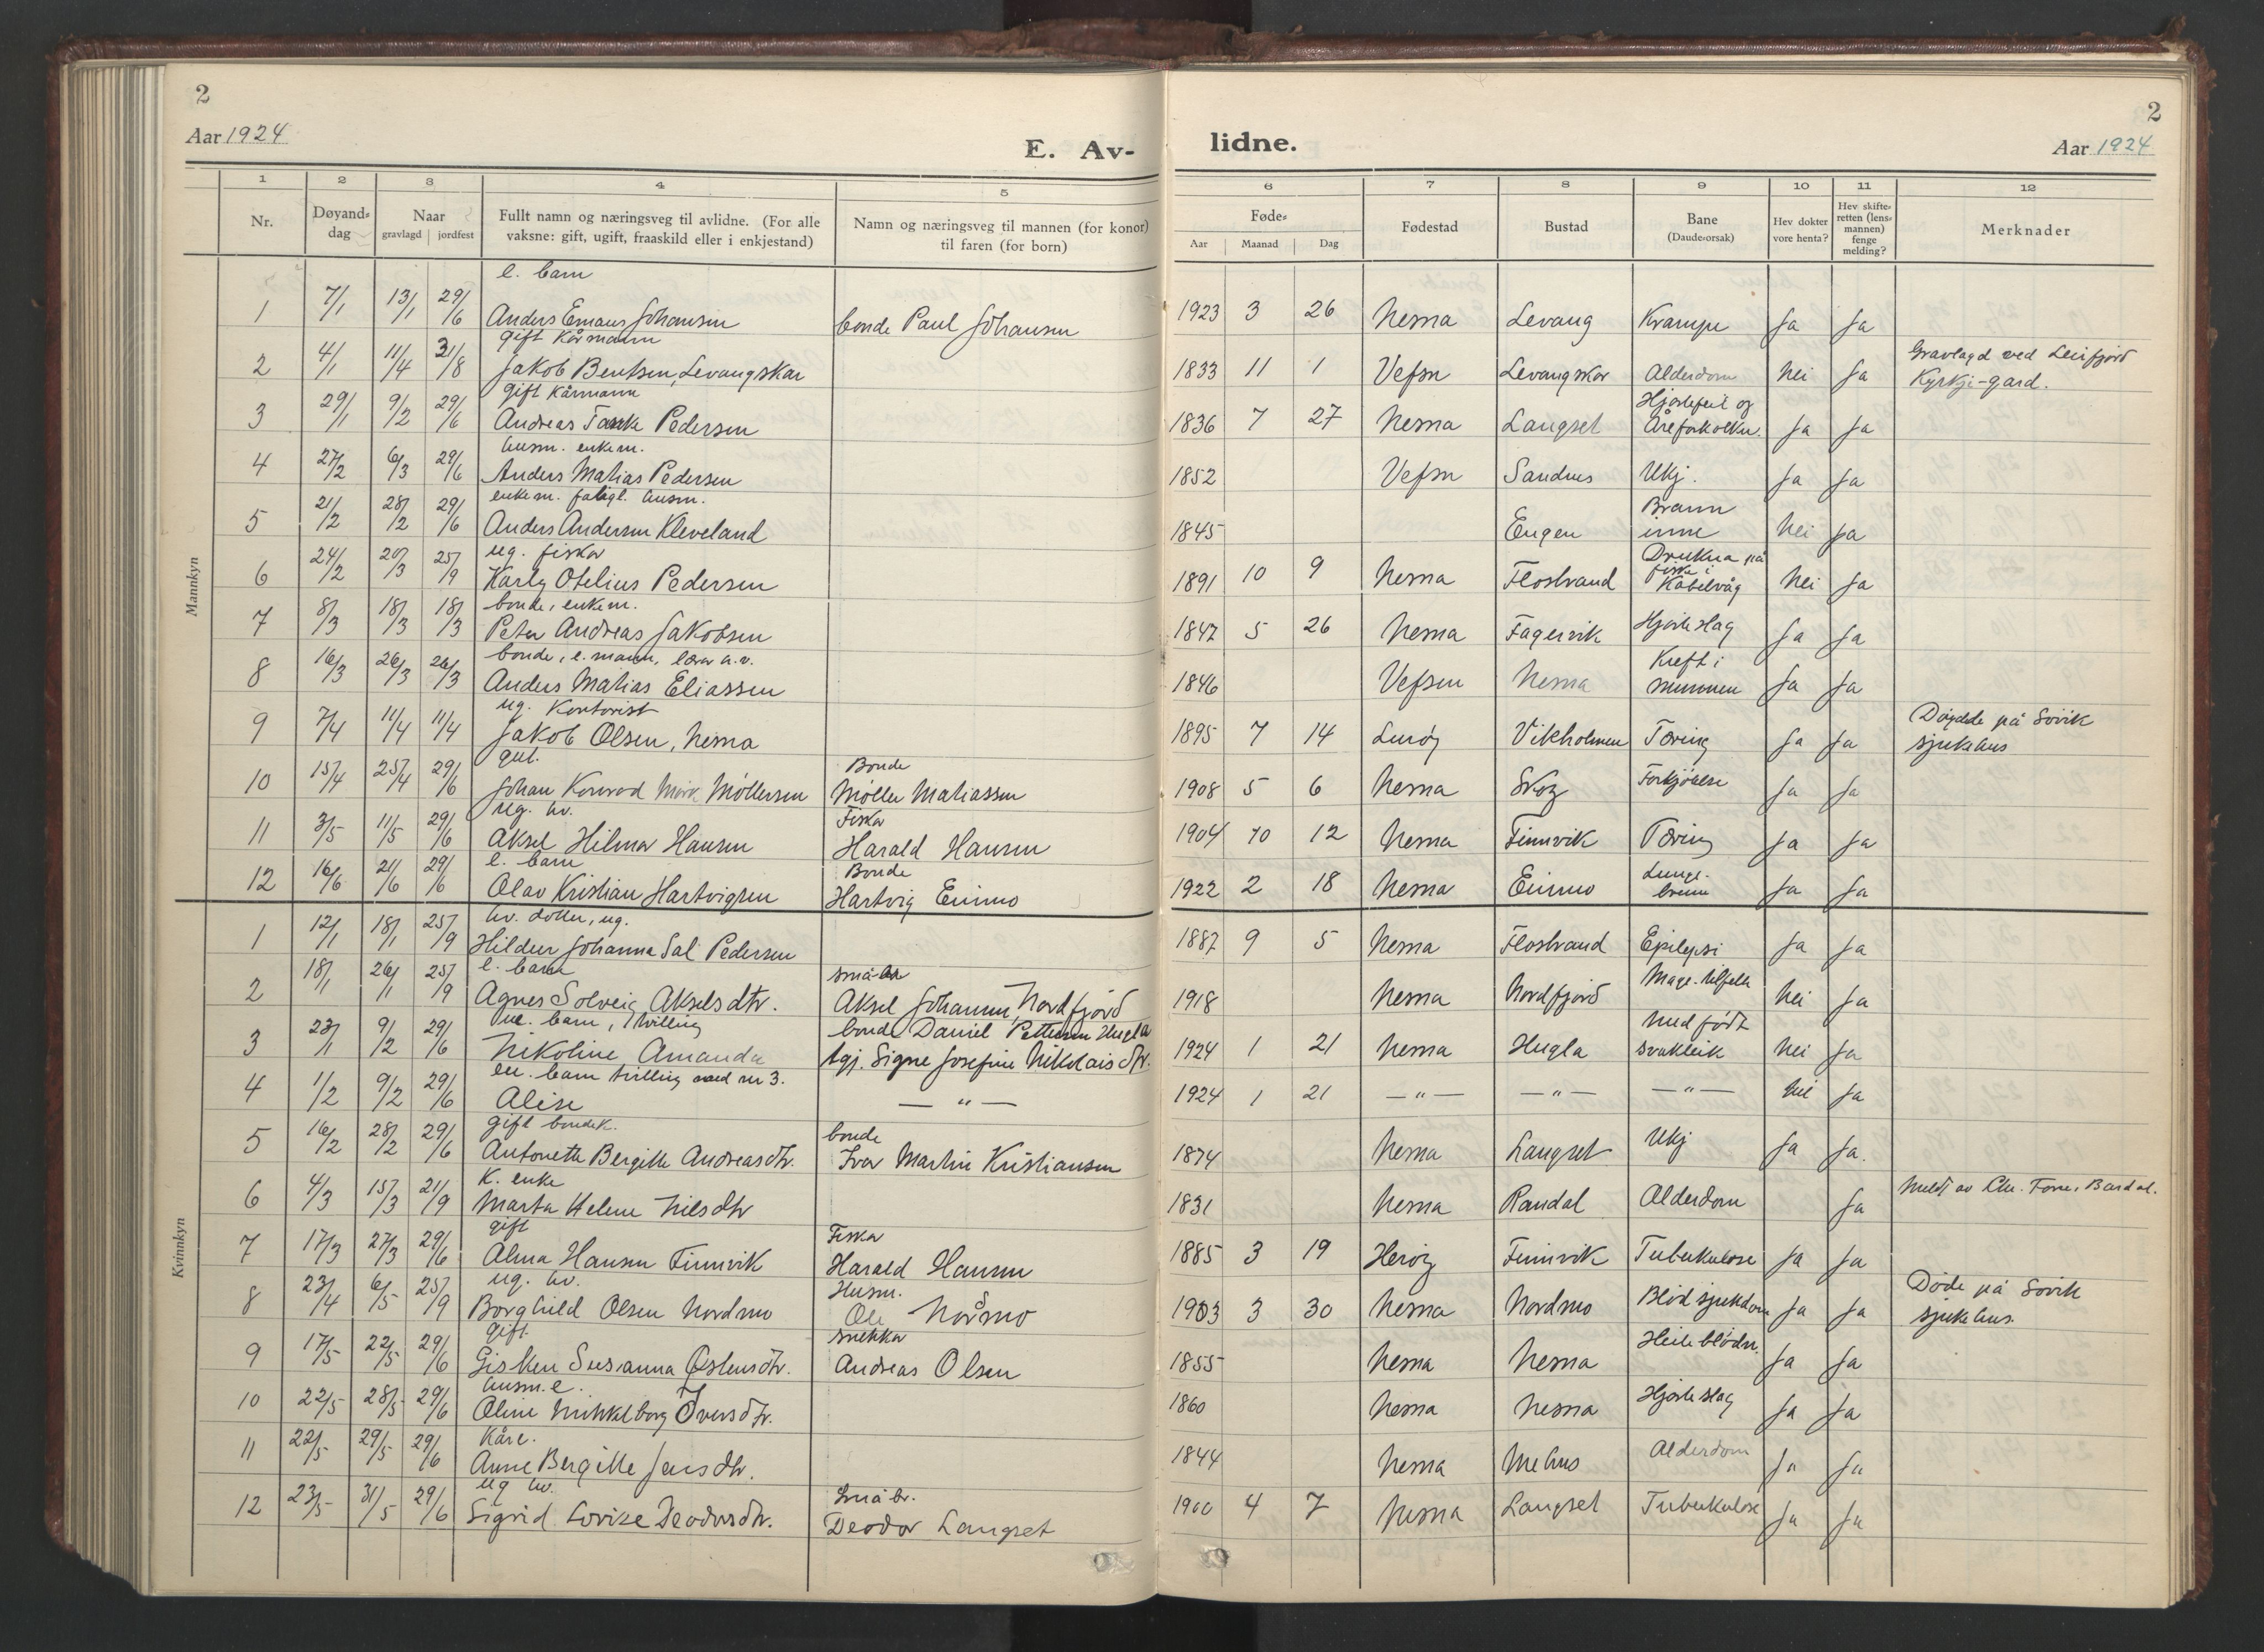 2
Aar 1924
E. Av-
1 2 3 4 5
Nr. Døyand-dag Naar gravlagd jordfest Fullt namn og næringsveg til avlidne. (For alle vaksne: gift, ugift, fraaskild eller i enkjestand) Namn og næringsveg til mannen (for konor) til faren (for born)
Mannkyn
e. barn
1 7/1 13/1 29/6 Anders Emaus Johansen bonde Paul Johansen
gift Kårmann
2 4/1 11/4 31/8 Jakob Bentsen, Levangskar
gift Kårmann
3 29/1 9/2 29/6 Andreas Tanke Pedersen
husm. enkem.
4 27/2 6/3 29/6 Anders Matias Pedersen
enkem. husm.
5 21/2 28/2 29/6 Anders Andersen Kleveland
ug. fiskar
6 24/2 20/3 25/9 Karly Otelius Pedersen
bonde, enkem.
7 8/3 18/3 18/3 Peter Andreas Jakobsen
bonde, e. mann, lærar a.v.
8 16/3 26/3 26/3 Anders Matias Eliassen
ug. Kontorist
9 7/4 11/4 11/4 Jakob Olsen, Nesna
gut. Bonde
10 15/4 25/4 29/6 Johan Konrad Møllersen Møller Matiassen
ug. av. Fiskar
11 3/5 11/5 29/6 Aksel Hilmar Hansen Harald Hansen
e. barn Bonde
12 16/6 21/6 29/6 Olav Kristian Hartvigsen Hartvig Einmo
Kvinnkyn
av. dotter, ug.
1 12/1 18/1 25/9 Hildur Johanna Sal. Pedersen
e. barn
2 18/1 26/1 25/9 Agnes Solveig Akselsdtr. Aksel Johansen, Nordfjord
ue. barn, tvilling bonde Daniel Pettersen Hugla
3 23/1 9/2 29/6 Nikoline Amanda tgj. Signe Josefine Nikolaisdtr.
ue. barn tvilling med nr 3.
4 1/2 9/2 29/6 Alise — " —
gift bondek. bonde
5 16/2 28/2 29/6 Antonette Bergitte Andreasdtr. Ivar Martin Kristiansen
K. enke
6 4/3 15/3 21/9 Marta Helene Nilsdtr
gift Fiskar
7 17/3 27/3 29/6 Alma Hansen Finnvik Harald Hansen
ug. av. Husm.
8 23/4 6/5 25/9 Borghild Olsen Nordmo Ole Nordmo
gift. snekkar
9 17/5 22/5 29/6 Gisken Susanna Østensdtr. Andreas Olsen
husm.e.
10 22/5 28/5 29/6 Oline Mikkelborg Iversdtr.
Kåre.
11 22/5 29/5 29/6 Anne Bergitte Jensdtr.
ug av. Småbr.
12 23/5 31/5 29/6 Sigrid Lovise Deodorsdtr. Deodor Langset
2
lidne.
Aar 1924
6 7 8 9 10 11 12
Føde- Aar Maanad Dag Fødestad Bustad Bane (Daude-orsak) Hev dokter vore henta? Hev skifte-retten (lens-mannen) fenge melding? Merknader
1923 3 26 Nesna Levang Krampe Ja Ja
1833 11 1 Vefsn Levangskar Alderdom Nei Ja Gravlagd ved Leirfjord Kyrkje-gard.
1836 7 27 Nesna Langset Hjartefeil og Åreforkalkn. Ja Ja
1852 Vefsn Sandnes Ukj. Ja Ja
1845 Engen Brann inne Nei Ja
1891 10 9 Nesna Flostrand Drukna på fiske i Kabelvåg Nei Ja
1847 5 26 Nesna Fagervik Hjarteslag Ja Ja
1846 Vefsen Nesna Kreft i munnen Ja Ja
1895 7 14 Lurøy Vikholmen Tæring Ja Ja Døydde på Søvik sjukehus
1908 5 6 Nesna Skog Forkjølelse Ja Ja
1904 10 12 Nesna Finnvik Tæring Ja Ja
1922 2 18 Nesna Einmo Lunge-brenn Ja Ja
1887 9 5 Nesna Flostrand Epilepsi Ja Ja
1918 Nesna Nordfjord Mage-tilfelle Nei Ja
1924 1 21 Nesna Hugla Medfødt svakleik Nei Ja
1924 1 21 — " — — " — — " — Nei Ja
1874 Nesna Langset Ukj Ja Ja.
1831 Nesna Randal Alderdom Ja Meldt av Chr. Bardal.
1885 3 19 Herøy Finnvik Tuberkulose Ja Ja
1903 3 30 Nesna Nordmo Blodsjukdom Ja Ja Døde på Søvik sjukehus.
1855 Nesna Nesna Heileblødn. Ja Ja
1860 Nesna Nesna Hjarteslag Ja Ja
1844 Nesna Mehus Alderdom Ja Ja
1900 4 7 Nesna Langset Tuberkulose Ja Ja